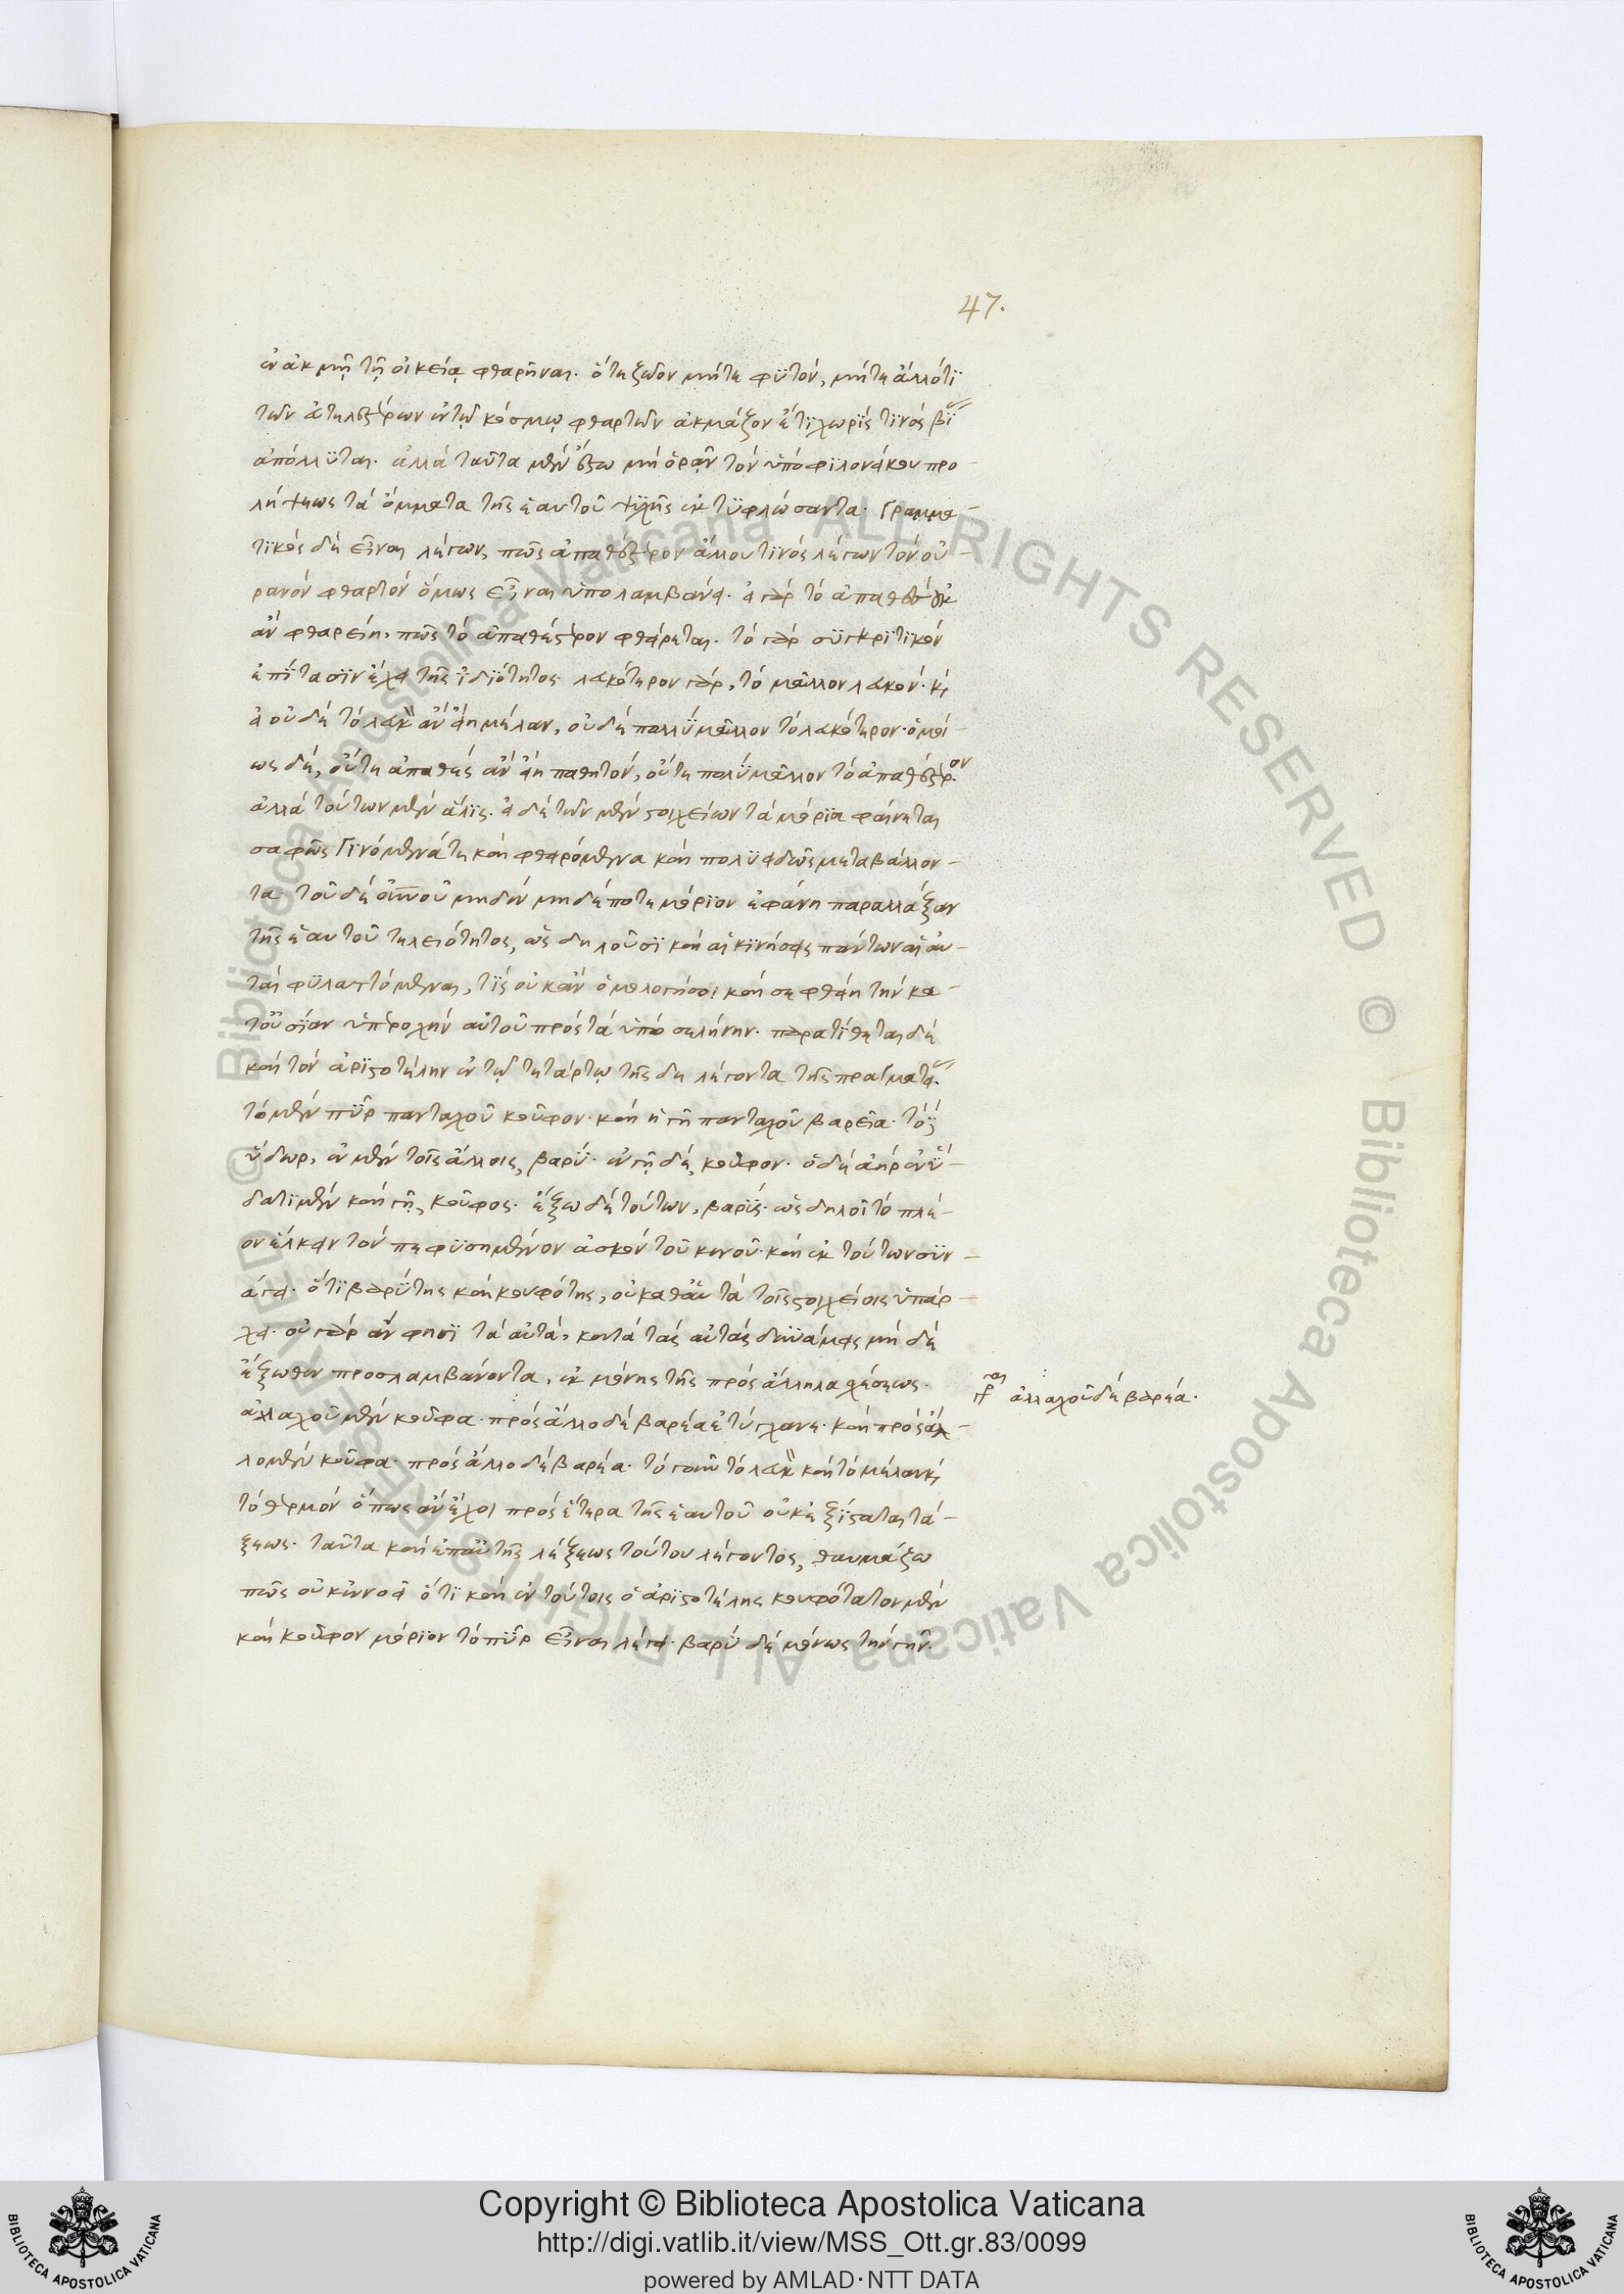 47.
ἐν ἀκμῇ τῇ οἰκείᾳ φθαρῆναι. ὅτε ζῶον μήτε φϋτόν, μήτε ἄλλό τϊ
τῶν ἀτελεστέρων ἐν τῷ κόσμῳ φθαρτῶν ἀκμάζον ἔτϊ χωρϊς τϊνός βϊ
ἀπόλλϋται. ἀλλά ταῦτα μέν ἔστω μή ὁρᾷν τόν ὑπό φϊλονείκου προ-
λήψεως τά ὄμματα τῆς ἑαυτοῦ ψϋχῆς ἐκτϋφλώσαντα. Γραμμα-
τϊκός δέ εἶναι λέγων, πῶς ἀπαθέστερον ἄλλου τϊνός λέγων τόν οὐ-
ρανόν φθαρτόν ὅμως εἶναι ὑπολαμβάνει. εἰ γάρ τό ἀπαθές οὐκ
ἄν φθαρείη, πῶς τό ἀπαθέστερον φθείρεται. τό γάρ συγκρϊτϊκόν
ἐπίτασϊν ἔχει τῆς ἰδϊότητος. λευκότερον γάρ, τό μᾶλλον λευκόν. κ
εἰ οὐδέ τό λευκ ἄν εἴη μέλαν, οὐδέ πολλϋ μᾶλλον τό λευκότερον. ὁμοί-
ως δέ, οὔτε ἀπαθές ἄν εἴη παθητόν, οὔτε πολϋ μᾶλλον τό ἀπαθέστερον.
ἀλλά τούτων μέν ἅλϊς. εἰ δέ τῶν μέν στοιχείων τά μόρϊα φαίνεται
σαφῶς Γϊνόμενά τε καί φθειρόμενα καί πολϋειδῶς μεταβάλλον-
τα. τοῦ δέ οὐνοῦ μηδέν μηδέποτε μόρϊον ἐφάνη παραλλάξαν
τῆς ἑαυτοῦ τελειότητος, ὡς δηλοῦσϊ καί αἱ κϊνήσεις πάντων αἱ αυ-
ταί φϋλαττόμεναι, τϊς οὐκ ἄν ὁμολογήσοι καί σεφθείη τήν κα-
τοὐσϊαν ὑπεροχήν αὐτοῦ πρός τά ὑπό σελήνην. παρατϊθεται δέ
καί τόν ἀρϊστοτέλην ἐν τῷ τετάρτῳ τῆσδε λέγοντα τῆς πραΓματεί.
τό μέν πῦρ πανταχοῦ κοῦφον. καί ἡ γῆ πανταχοῦ βαρεῖα. τό δ
ὕδωρ, ἐν μέν τοῖς ἄλλοις, βαρϋ. ἐν γῇ δέ, κοῦφον. ὁ δέ ἀήρ ἐν ὕ-
δατϊ μέν καί γῇ, κοῦφος. ἔξω δέ τούτων, βαρϋς. ὡς δηλοῖ τό πλέ-
ον ἕλκειν τόν πεφϋσημένον ἀσκόν τοῦ κενοῦ. καί ἐκ τούτων σϋν-
άγει. ὅτϊ βαρϋτης καί κουφότης, οὐ καθαυτά τοῖς στοιχείοις ὑπάρ-
χει. οὐ γάρ ἄν φησϊ τά αὐτά, κατά τάς αὐτάς δϋνάμεις μή δέ
ἔξωθεν προσλαμβάνοντα, ἐκ μόνης τῆς πρός ἄλληλα σχέσεως.
ἀλλαχοῦ μέν κοῦφα. πρός ἄλλο δέ βαρέα ἐτύγχανε. καί πρός ἄλ-
λο μέν κοῦφα. πρός ἄλλο δέ βαρέα. τό γοῦν τό λευκ καί τό μέλαν κ
τό θερμόν ὅπως ἄν ἔχοι πρός ἕτερα τῆς ἑαυτοῦ οὐκ ἐξϊσταται τά-
ξεως. ταῦτα καί ἐπαὐτῆς λέξεως τούτου λέγοντος, θαυμάζω
πῶς οὐκ ἐννοεῖ ὅτϊ καί ἐν τούτοις ὁ ἀρϊστοτέλης κουφότατον μέν
καί κοῦφον μόρϊον τό πῦρ εἶναι λέγει. βαρϋ δέ μόνως τήν γῆν.
ἀλλαχοῦ δέ βαρέα.
Copyright © Biblioteca Apostolica Vaticana
http://digi.vatlib.it/view/MSS_Ott.gr.83/0099
powered by AMLAD·NTT DATA
BIBLIOTECA APOSTOLICA VATICANA
BIBLIOTECA APOSTOLICA VATICANA
© Biblioteca Apostolica Vaticana ALL RIGHTS RESERVED © Biblioteca Apostolica Vaticana ALL RIGHTS RESERVED